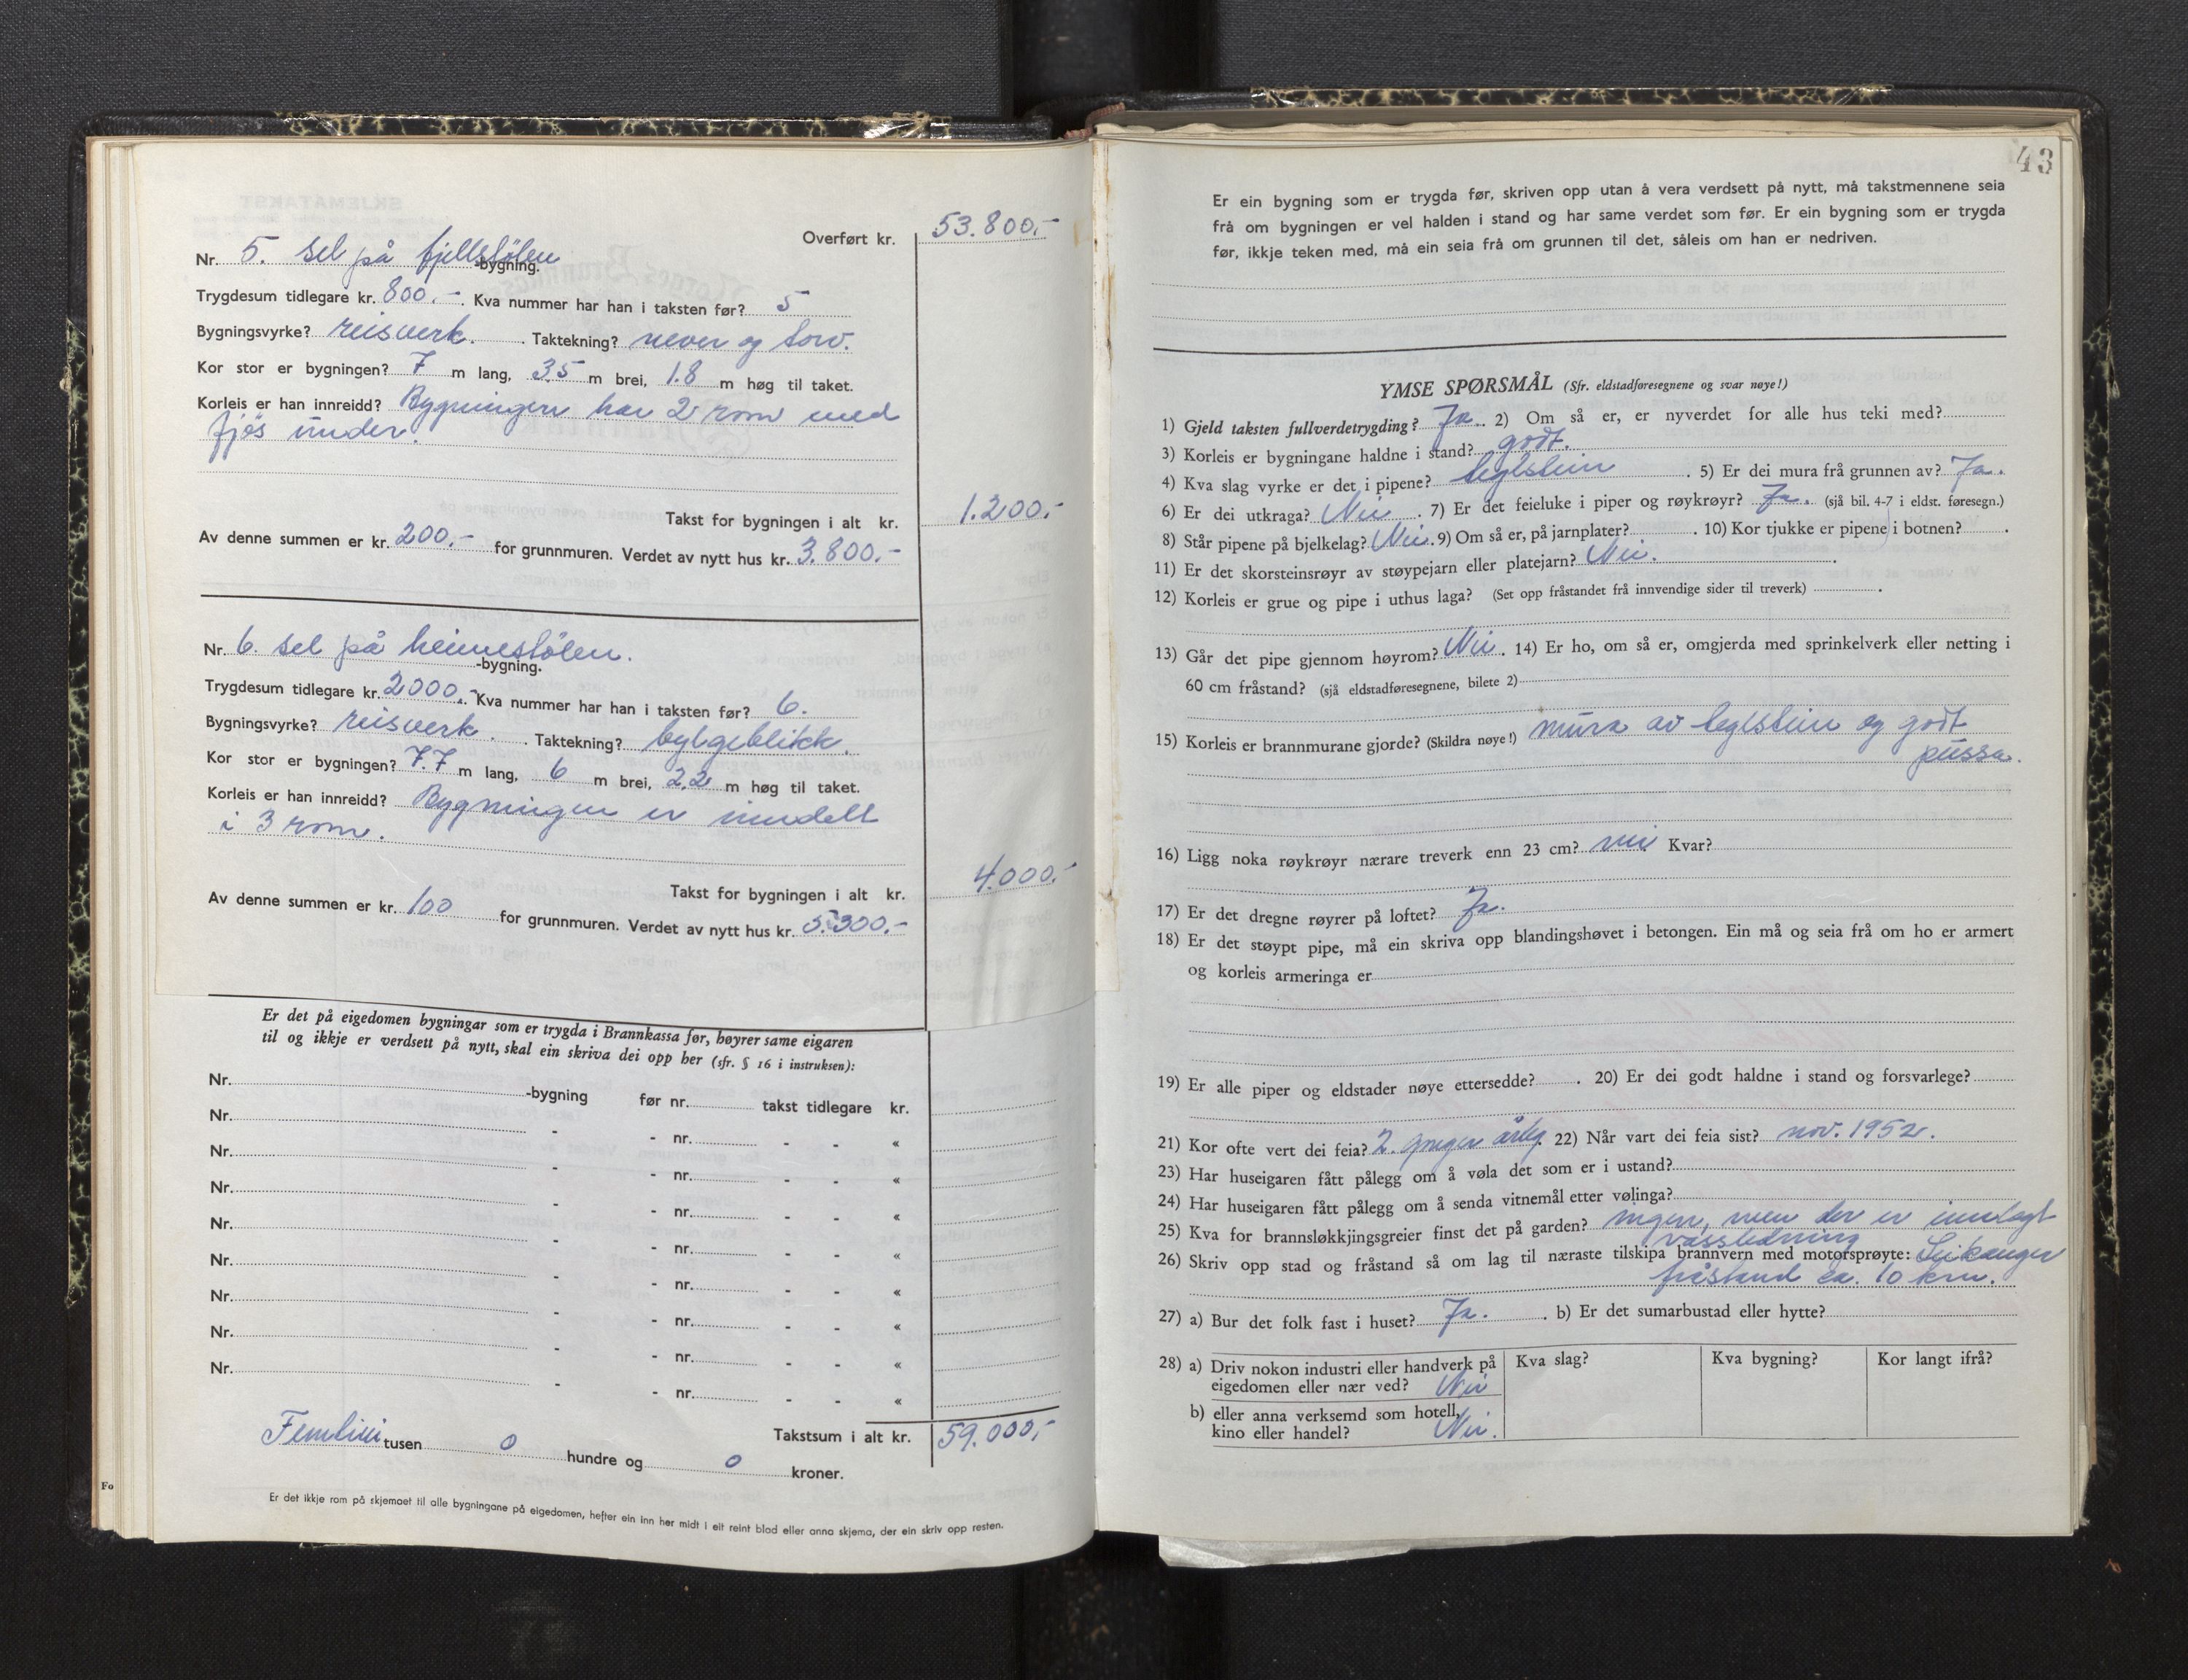 Overført kr. 53.800,-
Nr. 5. sel på fjellstölen -bygning.
Trygdesum tidlegare kr. 800.- . Kva nummer har han i taksten før? 5
Bygningsvyrke? reisverk. . Taktekning? never og torv.
Kor stor er bygningen? 7 m lang, 3.5 m brei, 1.8 m høg til taket.
Korleis er han innreidd? Bygningen har 2 rom med
fjös under.
Takst for bygningen i alt kr. 1.200.-
Av denne summen er kr. 200.- for grunnmuren. Verdet av nytt hus kr. 3.800.-
Nr. 6. sel på heimestölen. -bygning.
Trygdesum tidlegare kr. 2000.- Kva nummer har han i taksten før? 6.
Bygningsvyrke? reisverk. . Taktekning? bylgeblikk.
Kor stor er bygningen? 7.7 m lang, 6 m brei, 2.2 m høg til taket.
Korleis er han innreidd? Bygningen er inndelt
i 3 rom.
Takst for bygningen i alt kr. 4.000.-
Av denne summen er kr. 100 for grunnmuren. Verdet av nytt hus kr. 5.300.-
Er det på eigedomen bygningar som er trygda i Brannkassa før, høyrer same eigaren
til og ikkje er verdsett på nytt, skal ein skriva dei opp her (sfr. § 16 i instruksen):
Nr. -bygning før nr. takst tidlegare kr.
Nr. - - nr. - - «
Nr. - - nr. - - «
Nr. - - nr. - - «
Nr. - - nr. - - «
Nr. - - nr. - - «
Nr. - - nr. - - «
Nr. - - nr. - - «
Nr. - - nr. - - «
Takstsum i alt kr. 59.000,-
Femtini tusen 0 hundre og 0 kroner.
Fo
Er det ikkje rom på skjemaet til alle bygningane på eigedomen, hefter ein inn her midt i eit reint blad eller anna skjema, der ein skriv opp resten.
43
Er ein bygning som er trygda før, skriven opp utan å vera verdsett på nytt, må takstmennene seia
frå om bygningen er vel halden i stand og har same verdet som før. Er ein bygning som er trygda
før, ikkje teken med, må ein seia frå om grunnen til det, såleis om han er nedriven.
YMSE SPØRSMÅL (Sfr. eldstadføresegnene og svar nøye!)
1) Gjeld taksten fullverdetrygding? Ja. 2) Om så er, er nyverdet for alle hus teki med?
3) Korleis er bygningane haldne i stand? godt.
4) Kva slag vyrke er det i pipene? teglstein . 5) Er dei mura frå grunnen av? Ja.
6) Er dei utkraga? Nei . 7) Er det feieluke i piper og røykrøyr? Ja. (sjå bil. 4-7 i eldst. føresegn.)
8) Står pipene på bjelkelag? Nei. 9) Om så er, på jarnplater? . 10) Kor tjukke er pipene i botnen? .
11) Er det skorsteinsrøyr av støypejarn eller platejarn? Nei. .
12) Korleis er grue og pipe i uthus laga? (Set opp fråstandet frå innvendige sider til treverk) .
13) Går det pipe gjennom høyrom? Nei. 14) Er ho, om så er, omgjerda med sprinkelverk eller netting i
60 cm fråstand? (sjå eldstadføresegnene, bilete 2)
15) Korleis er brannmurane gjorde? (Skildra nøye!) mura av teglstein og godt
pussa.
16) Ligg noka røykrøyr nærare treverk enn 23 cm? nei Kvar?
17) Er det dregne røyrer på loftet? Ja.
18) Er det støypt pipe, må ein skriva opp blandingshøvet i betongen. Ein må og seia frå om ho er armert
og korleis armeringa er
19) Er alle piper og eldstader nøye ettersedde? . 20) Er dei godt haldne i stand og forsvarlege?
21) Kor ofte vert dei feia? 2. gonger årleg. 22) Når vart dei feia sist? nov. 1952.
23) Har huseigaren fått pålegg om å vøla det som er i ustand?
24) Har huseigaren fått pålegg om å senda vitnemål etter vølinga?
25) Kva for brannsløkkjingsgreier finst det på garden? ingen, men der er innlagt
vassledning
26) Skriv opp stad og fråstand så om lag til næraste tilskipa brannvern med motorsprøyte: Leikanger
fråstand ca. 10 km.
27) a) Bur det folk fast i huset? Ja. . b) Er det sumarbustad eller hytte?
28) a) Driv nokon industri eller handverk på eigedomen eller nær ved? Nei Kva slag? Kva bygning? Kor langt ifrå?
b) eller anna verksemd som hotell,
kino eller handel? Nei.